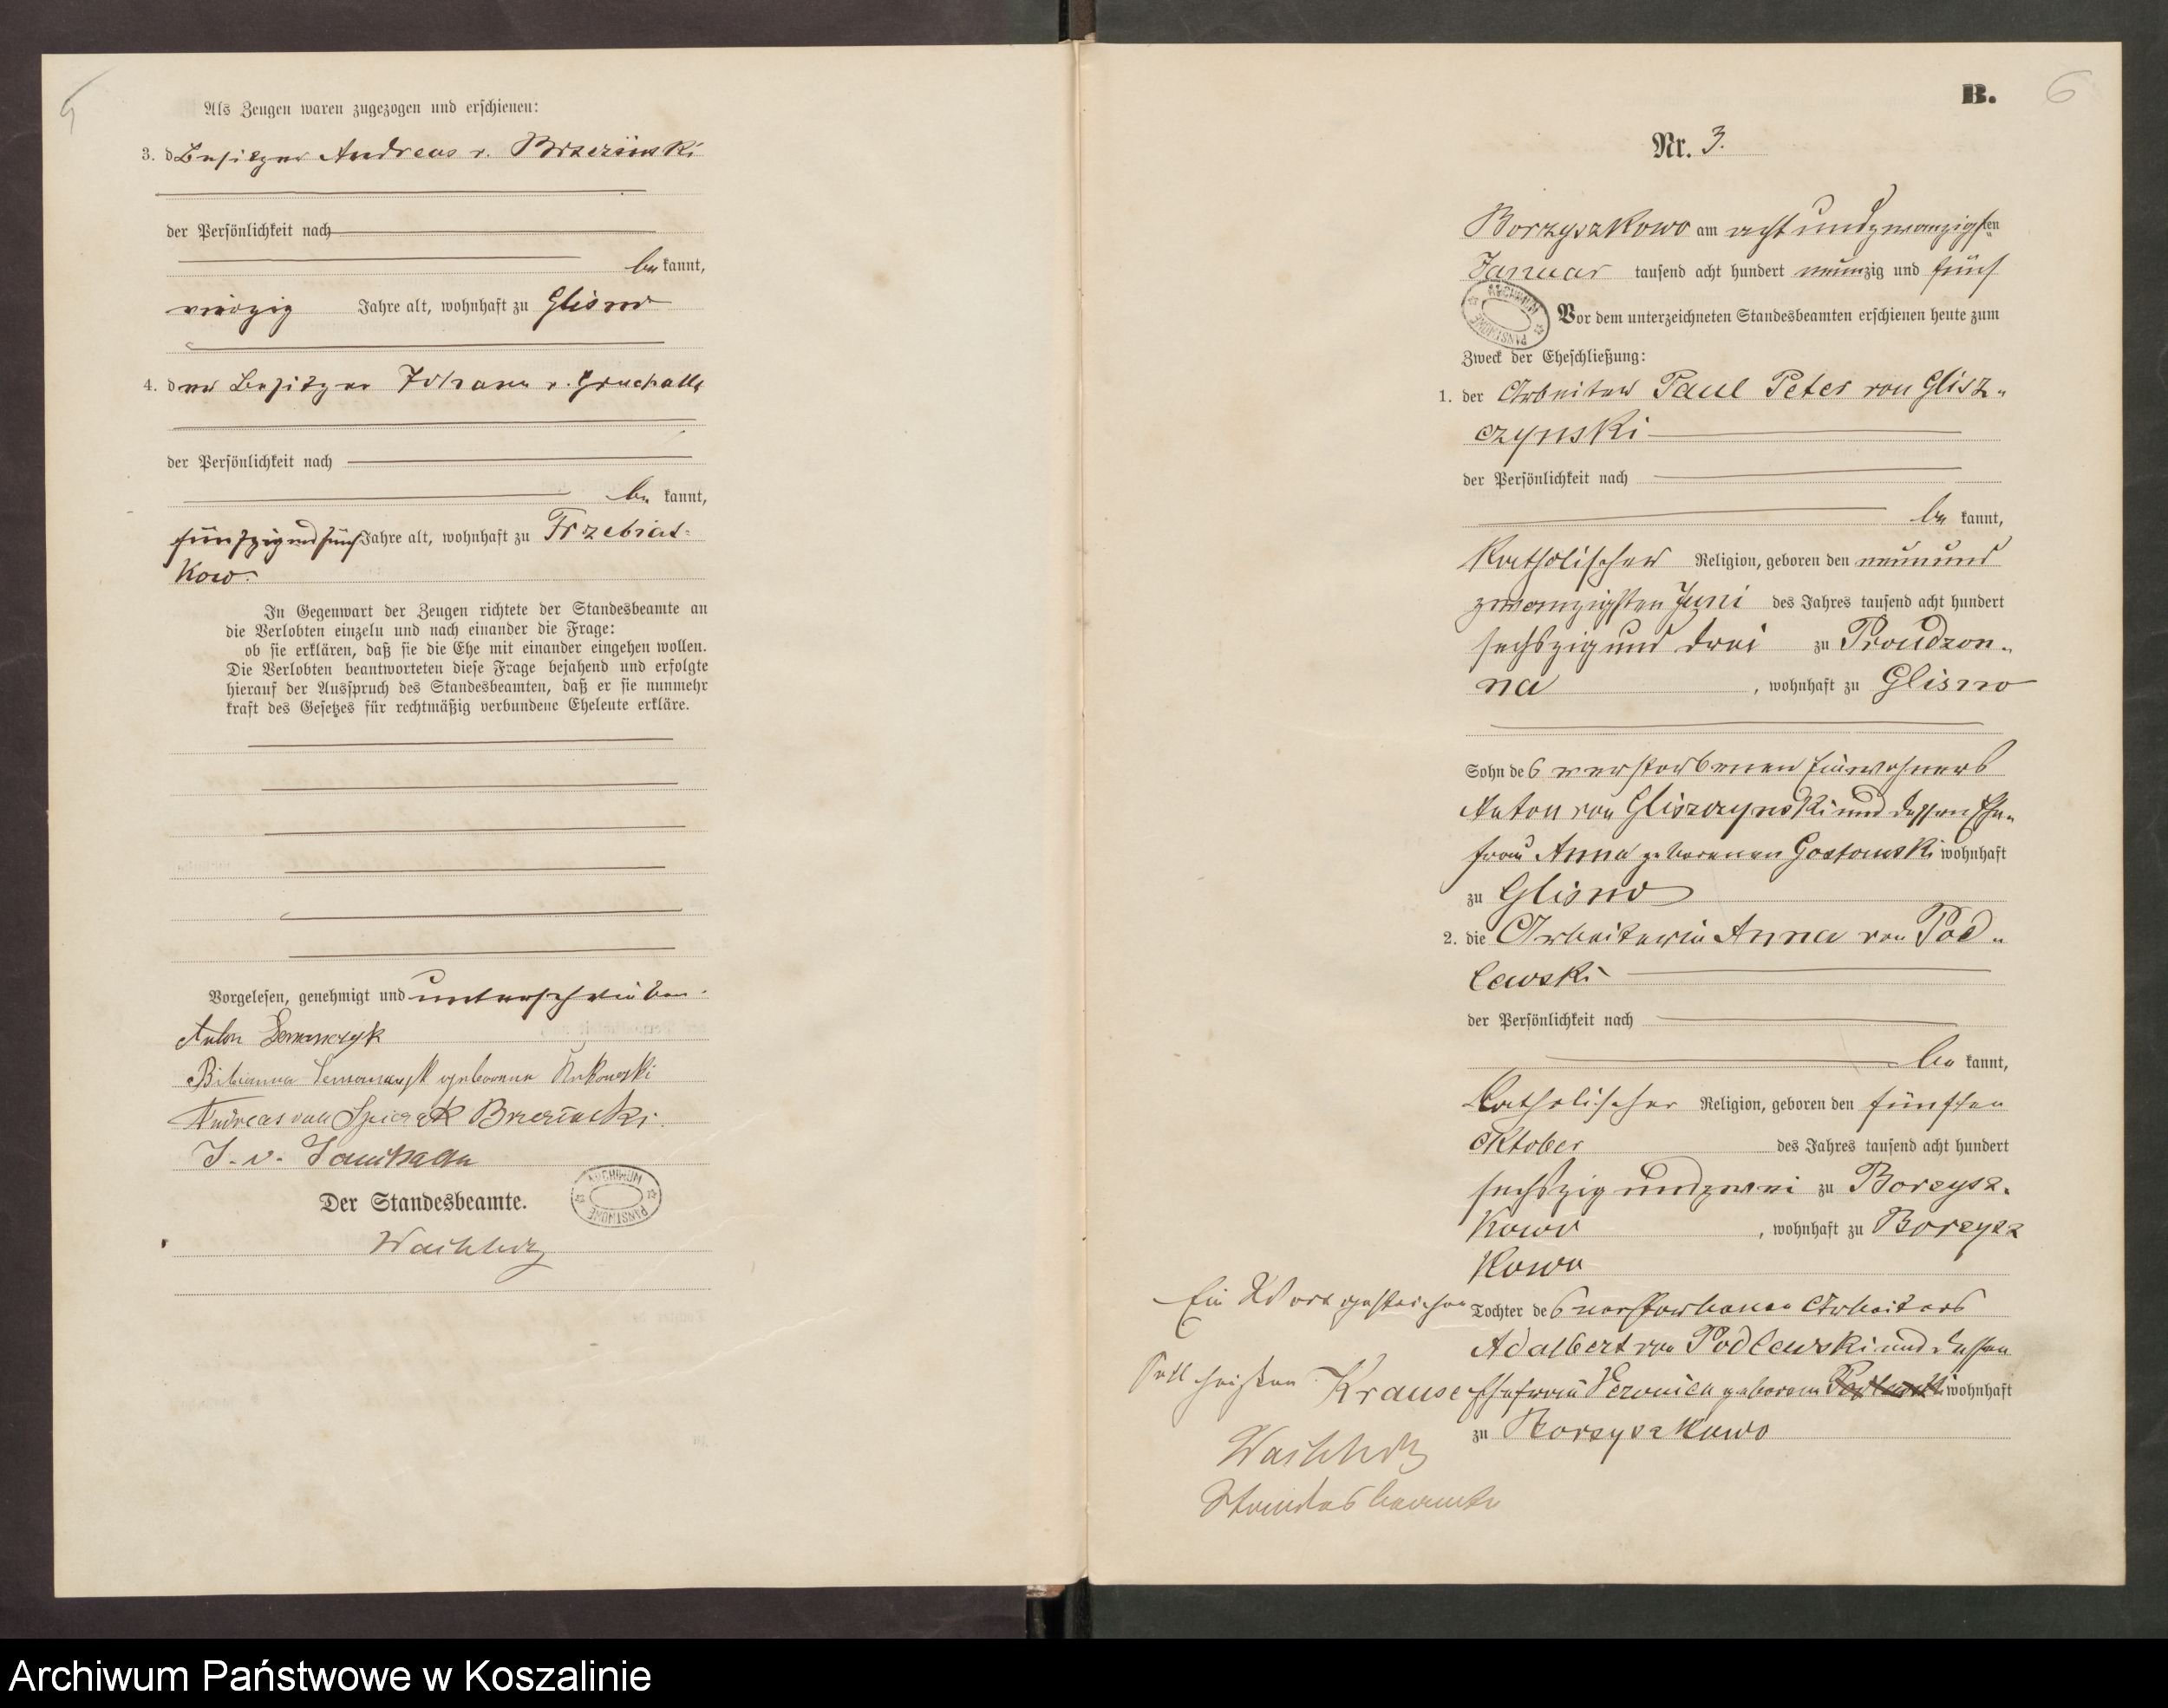 5
Als Zeugen waren zugezogen und erschienen:
3. d Besitzer Andreas v. Brzezinski
der Persönlichkeit nach
be kannt,
vierzig Jahre alt, wohnhaft zu Glisno
4. der Besitzer Johann v. Gruchalla
der Persönlichkeit nach
be kannt,
fünfzig und fünf Jahre alt, wohnhaft zu Trzebiat-
kow.
In Gegenwart der Zeugen richtete der Standesbeamte an
die Verlobten einzeln und nach einander die Frage:
ob sie erklären, daß sie die Ehe mit einander eingehen wollen.
Die Verlobten beantworteten diese Frage bejahend und erfolgte
hierauf der Ausspruch des Standesbeamten, daß er sie nunmehr
kraft des Gesetzes für rechtmäßig verbundene Eheleute erkläre.
Vorgelesen, genehmigt und unterschrieben.
Anton Lemanczyk
Bibianna Lemanczyk geborene
Andreas von Spiczak Brzezinski.
J. v.
Der Standesbeamte.
ARCHIWUM PAŃSTWOWE
Wachholz
B. 6
Nr. 3.
Borzyszkowo am acht und zwanzigsten
Januar tausend acht hundert neunzig und fünf
ARCHIWUM PAŃSTWOWE
Vor dem unterzeichneten Standesbeamten erschienen heute zum
Zweck der Eheschließung:
1. der Arbeiter Paul Peter von Glisz-
czynski
der Persönlichkeit nach
be kannt,
katholischer Religion, geboren den neunund
zwanzigsten Juni des Jahres tausend acht hundert
sechszig und drei zu Prondzon-
na, wohnhaft zu Glisno
Sohn des verstorbenen Einwohners
Anton von Gliszczynski und dessen Ehe-
frau Anna geborenen Gostomski wohnhaft
zu Glisno
2. die Arbeiterin Anna von Pod-
lewski
der Persönlichkeit nach
be kannt,
katholischer Religion, geboren den fünften
Oktober des Jahres tausend acht hundert
sechszig und zwei zu Borzysz-
kowo, wohnhaft zu Borzysz
kowo
Ein Wort gestrichen
Tochter des verstorbenen Arbeiters
Adalbert von Podlewski und dessen
soll heißen Krause
Ehefrau Veronica geborene wohnhaft
zu Borzyszkowo
Wachholz
Standesbeamte
Archiwum Państwowe w Koszalinie